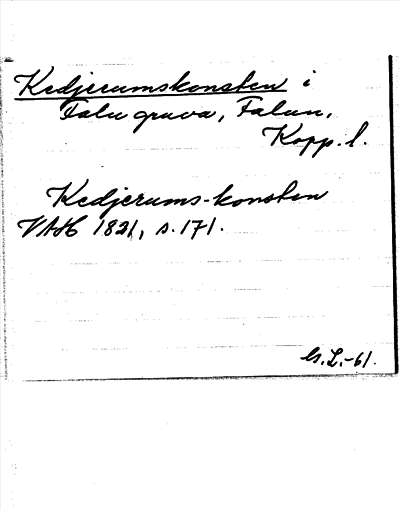 Kedjerumskonsten i
Falu gruva, Falun,
Kopp. l.
Kedjerums-konsten
VAH 1821, s. 171.
G. L. -61.